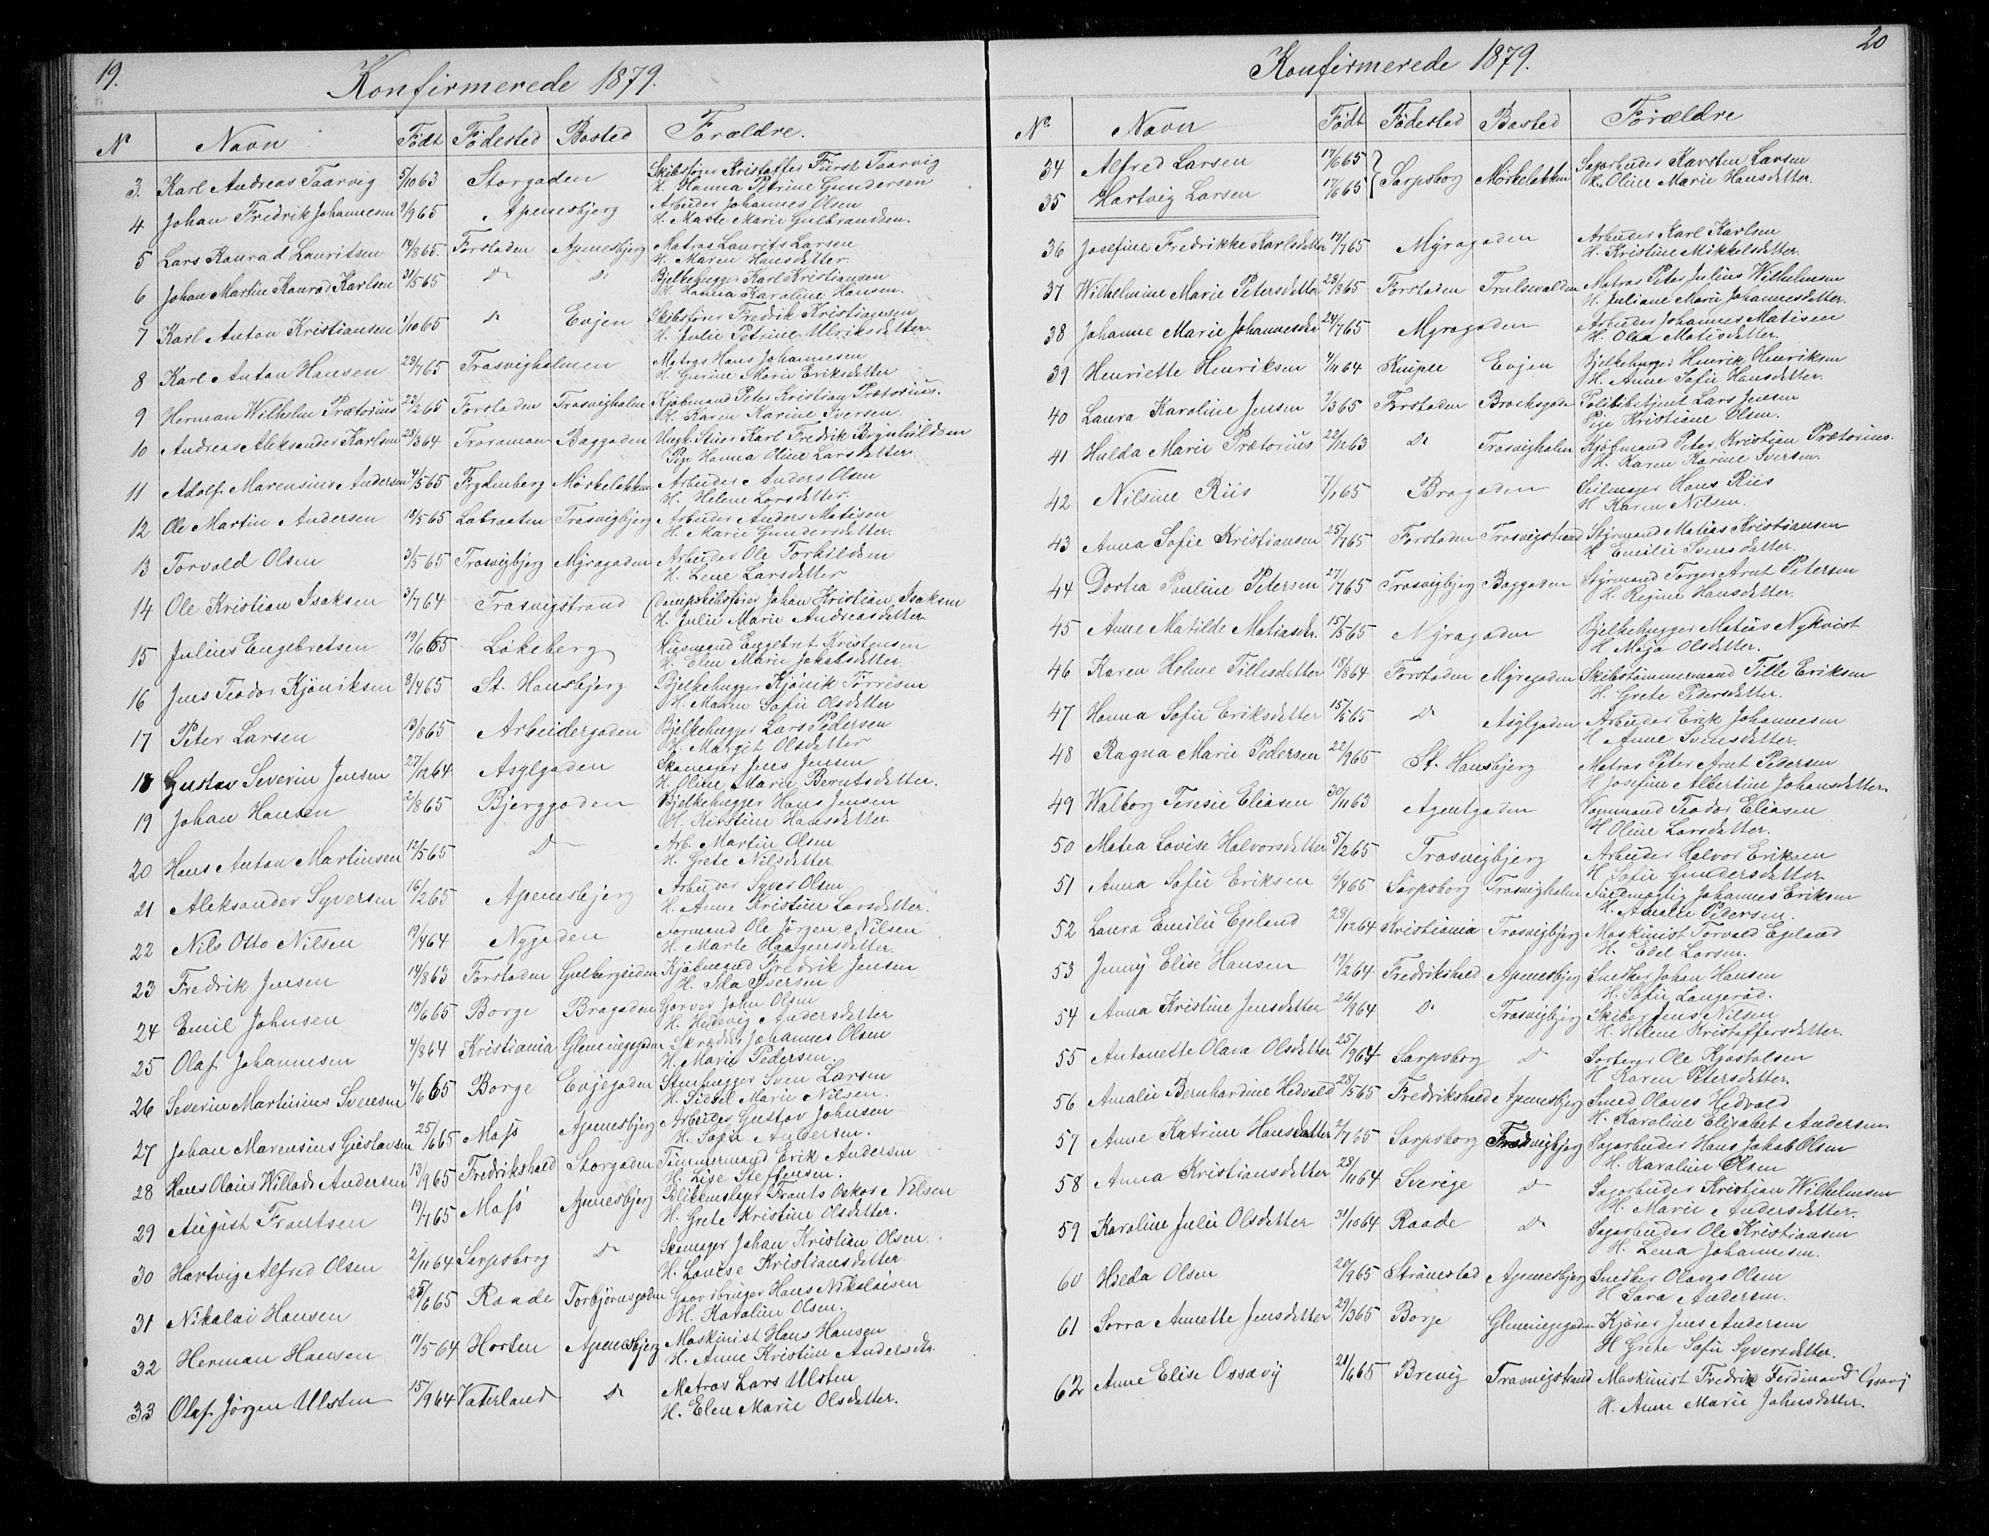 19.
Konfirmerede 1879.
N Navn Født Fødested Bosted Forældre.
3. Karl Andreas Taarvig 5/10 63 Storgaden Skibsfører Kristoffer Fürst Taarvig
H. Hanna Petrine Gundersen
4 Johan Fredrik Johannesen 9/9 65 Apenesbjerg Arbeider Johannes Olsen
H. Marte Marie Gulbrandsen.
5 Lars Konrad Lauritsen 14/8 65. Forstaden Apenesbjerg Matros Laurits Larsen
H. Maren Hansdatter.
6 Johan Martin Konrad Karlsen 31/5 65 D D Bjelkehugger Karl Kristiansen
H. Hanna Karoline Hansen.
7 Karl Anton Kristiansen 1/10 65 D Evjen Skibsfører Fredrik Kristiansen
H. Julie Petrine Ulriksdatter
8 Karl Anton Hansen 28/7 65 Trosvigholmen Matros Hans Johannesen
H. Gurine Marie Eriksdatter
9 Herman Wilhelm Prætorius 22/2 65 Forstaden Trosvigholm Kjøbmand Peter Kristian Prætorius.
H. Karen Karine Iversen.
10 Andreas Aleksander Karlsen 28/3 64 Traraman Baggaden Ungk. Stuer Karl Fredrik Brynhildsen
Pige Hanna Oline Larsdatter
11 Adolf Marensius Andersen 4/5 65 Frydenberg Mørkeløkken Arbeider Anders Olsen
H. Helene Larsdatter.
12 Ole Martin Andersen 18/5 65 Labraaten Trosvigbjerg Arbeider Anders Matisen
H. Marie Gundersdatter.
13 Torvald Olsen 3/5 65 Trosvigbjerg Myragaden Arbeider Ole Torkildsen
H. Lene Larsdatter
14 Ole Kristian Isaksen 3/7 64 Trosvigstrand Dampskibsfører Johan Kristian Isaksen
H. Julie Marie Andreasdatter
15 Julius Engebretsen 19/6 65 Løkeberg Huusmand Engebret Kristensen
H. Elen Marie Jakobsdatter.
16 Jens Teodor Kjøniksen 8/4 65 St. Hansbjerg Bjelkehugger Kjønik Torresen
H. Maren Sofie Olsdatter
17 Peter Larsen 13/8 65 Arbeidergaden Bjelkehugger Lars Pedersen
H. Margit Olsdatter
18 Gustav Severin Jensen 27/12 64 Asylgaden Skomager Jens Jensen
H. Oline Marie Berntsdatter.
19 Johan Hansen 2/8 65 Bjerggaden Bjelkehugger Hans Jensen
H. Kirstine Hansdatter
20 Hans Anton Martinsen 12/5 65 D Arb. Martin Olsen
H. Grete Nilsdatter
21 Aleksander Syversen 16/2 65 Apenesbjerg Arbeider Syver Olsen
H. Anne Kristine Larsdatter.
22 Nils Otto Nilsen 19/4 64 Nygaden Formand Ole Jørgen Nilsen
H. Marte Haagensdatter.
23 Fredrik Jensen 14/8 63 Forstaden Gulbergsiden Kjøbmand Fredrik Jensen
H. Ida Iversen
24 Emil Johnsen 18/6 65 Borge Brogaden Garver John Olsen
H. Hedevig Andersdatter
25 Olaf Johannesen 4/8 64 Kristiania Glemmegaden Skrædder Johannes Olsen
H. Marie Pedersen.
26 Severin Martinius Svensen 4/6 65 Borge Evjegaden Stenhugger Sven Larsen
H. Sidsel Marie Nilsen.
27 Johan Marensius Gustavsen 25/6 65 Moss Apenesbjerg Arbeider Gustav Johnsen
H. Sofie Andersen.
28 Hans Olaus Willads Andersen 13/9 65 Fredrikshald Storgaden Tømmermand Erik Andersen
H. Lise Steffensen.
29 August Frantsen 19/7 65 Moss Apenesbjerg Blikkenslager Frants Oskar Nilsen
H. Grete Kristine Olsdatter.
30 Hartvig Alfred Olsen 2/11 64 Sarpsborg D Skomager Johan Kristian Olsen
H. Lovise Kristiansdatter
31 Nikolai Hansen 28/6 65 Raade Torbjørnsgaden Gaardbruger Hans Nikolaisen
H. Karoline Olsen.
32 Herman Hansen 11/5 64 Horten Apenesbjerg Maskinist Hans Hansen
H. Anne Kristine Andersdtr.
33 Olaf Jørgen Ulsten 15/9 64 Vaterland D Matros Lars Ulsten
H. Elen Marie Olsdatter.
20
Konfirmerede 1879.
No Navn Født Fødested Bosted Forældre
34 Alfred Larsen 17/6 65 Sarpsborg Mørkeløkken Sagarbeider Karsten Larsen
35 Hartvig Larsen 17/6 65 H. Oline Marie Hansdatter.
36 Josefine Fredrikke Karlsdatter 12/7 65 Myragaden Arbeider Karl Karlsen
H. Kristine Mikkelsdatter.
37 Wilhelmine Marie Petersdatter 28/8 65 Forstaden Trulsvolden Matros Peter Julius Wilhelmsen
H. Juliane Marie Johannesdatter.
38 Johanne Marie Johannesdtr 24/7 65 Myragaden Arbeider Johannes Matisen
H. Olea Matisdatter.
39 Henriette Henriksen 4/11 64 Kniple Evjen Bjelkehugger Henrik Henriksen
H. Anne Sofie Hansdatter.
40 Laura Karoline Jensen 7/3 65 Forstaden Brocksgaden Politibetjent Lars Jensen
Pige Kristiane Olsen.
41 Hulda Marie Prætorius 22/12 63 D Trosvigholm Kjøbmand Peter Kristian Prætorius.
H. Karen Karine Iversen.
42 Nilsine Riis 7/1 65 Brogaden Seilmager Hans Riis
H Karen Nilsen.
43 Anna Sofie Kristiansen 25/7 65 Forstaden Trosvigstrand Styrmand Matias Kristiansen
H Emilie Svensdatter.
44 Dortea Pauline Petersen 27/7 65 Trosvigbjerg Baggaden Styrmand Torger Arnt Petersen
H. Regine Hansdatter.
45 Anne Matilde Matiasdtr. 15/5 65 Myragaden Bjelkehugger Matias Nykvist
H Maja Olsdatter.
46 Karen Helene Tillesdatter 18/8 64 Forstaden Myragaden Skibstømmermand Tille Eriksen
H. Grete Pedersdatter.
47 Hanna Sofie Eriksdatter 15/5 65 D Asylgaden Arbeider Erik Johannesen
H Anne Svensdatter.
48 Ragna Marie Pedersen 22/9 65 St. Hansbjerg Matros Peter Arnt Pedersen
H Josefine Albertine Johansdatter.
49 Walborg Teresie Eliasen 30/11 63 Agentgaden Vognmand Teodor Eliasen
H Oline Larsdatter.
50 Matea Lovise Halvorsdatter 5/2 65 Trosvigbjerg Arbeider Halvor Eriksen
H Sofie Gundersdatter
51 Anna Sofie Eriksen 6/4 65 Sarpsborg Trosvigholm Fuldmægtig Johannes Eriksen
H. Amalie Pedersen.
52 Laura Emilie Egeland 28/12 64 Kristiania Trosvigbjerg Maskinist Torvald Egeland
H. Edel Larsen.
53 Jenny Elise Hansen 19/2 64 Fredrikshald Apenesbjerg Snedker Johan Hansen
H. Sofie Langerød.
54 Anna Kristine Jensdatter 26/9 64 D Trosvigbjerg Skiber Jens Nilsen
H. Helene Kristoffersdatter.
55 Antonette Olava Olsdatter 25/9 64 Sarpsborg D Sorterer Ole Kjøstolsen
H Karen Petersdatter.
56 Amalie Bernhardine Hedvald 28/5 65 Fredrikshald Apenesbjerg Smed Olaves Hedvald
H. Karoline Elisabet Andersen.
57 Anne Katrine Hansdatter 2/7 65 Sarpsborg Trosvigbjerg Sagarbeider Hans Jakob Olsen
H. Karoline Olsen
58 Anna Kristiansdatter 28/11 64 Sverige D Sagarbeider Kristian Wilhelmsen
H. Marie Andersdatter.
59 Karoline Julie Olsdatter 31/10 64 Raade D Sagarbeider Ole Kristiansen
H. Lena Johannesen.
60 Hilda Olsen 20/9 65 Strømstad Apenesbjerg Snedker Olaves Olsen
H Sara Andersen.
61 Sorra Annette Jensdatter 29/3 65 Borge Glemmegaden Kjører Jens Andersen
H Grete Sofie Syversdatter.
62 Anne Elise Ossavy 21/6 65 Brevig Trosvigstrand Maskinist Fredrik Ferdinand Ossavy
H. Anne Marie Johnsdatter.